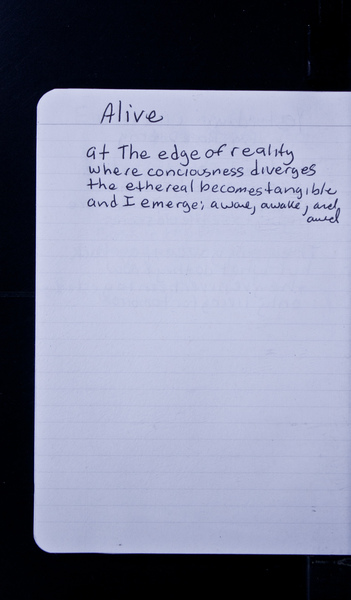 Alive
at The edge of reality
where conciousness diverges
the ethereal becomes tangible
and I emerge; aware, awake, and
awed